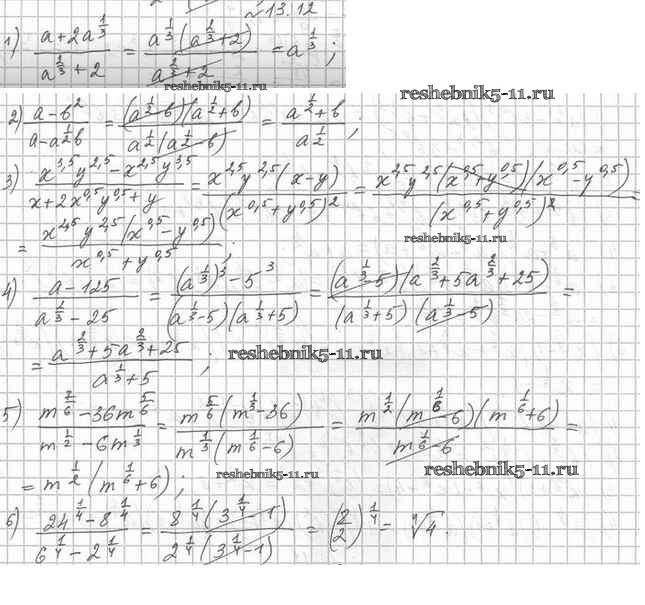 №13.12
1) \frac{a+2a^{\frac{1}{3}}}{a^{\frac{2}{3}}+2} = \frac{a^{\frac{1}{3}}(a^{\frac{2}{3}}+2)}{a^{\frac{2}{3}}+2} = a^{\frac{1}{3}};
reshebnik5-11.ru
reshebnik5-11.ru
2) \frac{a-b^2}{a-a^{\frac{1}{2}}b} = \frac{(a^{\frac{1}{2}}-b)(a^{\frac{1}{2}}+b)}{a^{\frac{1}{2}}(a^{\frac{1}{2}}-b)} = \frac{a^{\frac{1}{2}}+b}{a^{\frac{1}{2}}};
3) \frac{x^{3,5}y^{2,5}-x^{2,5}y^{3,5}}{x+2x^{0,5}y^{0,5}+y} = \frac{x^{2,5}y^{2,5}(x-y)}{(x^{0,5}+y^{0,5})^2} = \frac{x^{2,5}y^{2,5}(x^{0,5}+y^{0,5})(x^{0,5}-y^{0,5})}{(x^{0,5}+y^{0,5})^2} =
= \frac{x^{2,5}y^{2,5}(x^{0,5}-y^{0,5})}{x^{0,5}+y^{0,5}};
reshebnik5-11.ru
4) \frac{a-125}{a^{\frac{2}{3}}-25} = \frac{(a^{\frac{1}{3}})^3-5^3}{(a^{\frac{1}{3}}-5)(a^{\frac{1}{3}}+5)} = \frac{(a^{\frac{1}{3}}-5)(a^{\frac{2}{3}}+5a^{\frac{2}{3}}+25)}{(a^{\frac{1}{3}}+5)(a^{\frac{1}{3}}-5)} =
= \frac{a^{\frac{2}{3}}+5a^{\frac{2}{3}}+25}{a^{\frac{1}{3}}+5};
reshebnik5-11.ru
5) \frac{m^{\frac{7}{6}}-36m^{\frac{5}{6}}}{m^{\frac{1}{2}}-6m^{\frac{1}{3}}} = \frac{m^{\frac{5}{6}}(m^{\frac{1}{3}}-36)}{m^{\frac{1}{3}}(m^{\frac{1}{6}}-6)} = \frac{m^{\frac{1}{2}}(m^{\frac{1}{6}}-6)(m^{\frac{1}{6}}+6)}{m^{\frac{1}{6}}-6} =
= m^{\frac{1}{2}}(m^{\frac{1}{6}}+6);
reshebnik5-11.ru
reshebnik5-11.ru
6) \frac{24^{\frac{1}{4}}-8^{\frac{1}{4}}}{6^{\frac{1}{4}}-2^{\frac{1}{4}}} = \frac{8^{\frac{1}{4}}(3^{\frac{1}{4}}-1)}{2^{\frac{1}{4}}(3^{\frac{1}{4}}-1)} = (\frac{8}{2})^{\frac{1}{4}} = \sqrt[4]{4}.